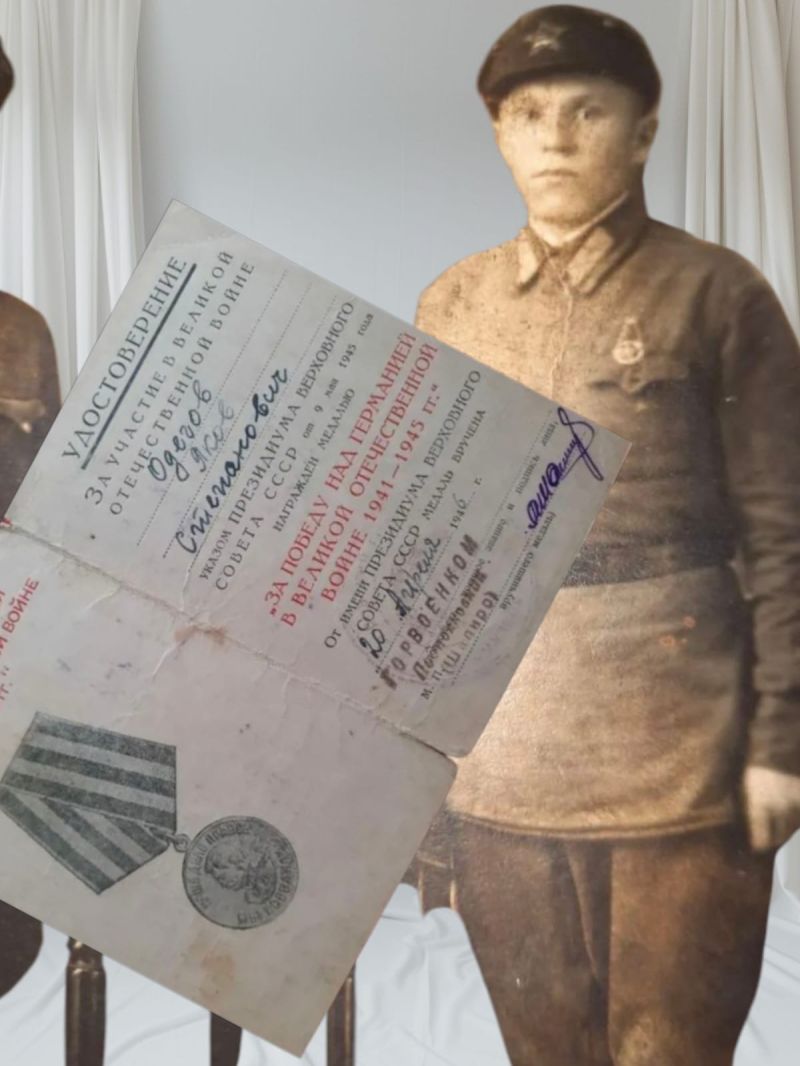 УДОСТОВЕРЕНИЕ
ЗА УЧАСТИЕ В ВЕЛИКОЙ
ОТЕЧЕСТВЕННОЙ ВОЙНЕ
Одегов
Яков
Степанович
УКАЗОМ ПРЕЗИДИУМА ВЕРХОВНОГО
СОВЕТА СССР от 9 мая 1945 года
НАГРАЖДЕН МЕДАЛЬЮ
„ЗА ПОБЕДУ НАД ГЕРМАНИЕЙ
В ВЕЛИКОЙ ОТЕЧЕСТВЕННОЙ
ВОЙНЕ 1941—1945 гг.“
ОТ ИМЕНИ ПРЕЗИДИУМА ВЕРХОВНОГО
СОВЕТА СССР МЕДАЛЬ ВРУЧЕНА
20 Апреля 1946 г.
ГОРВОЕНКОМ
звания и подпись лица,
М. П. (Шапиро) вручившего медаль)
Й ВОЙНЕ
гг."